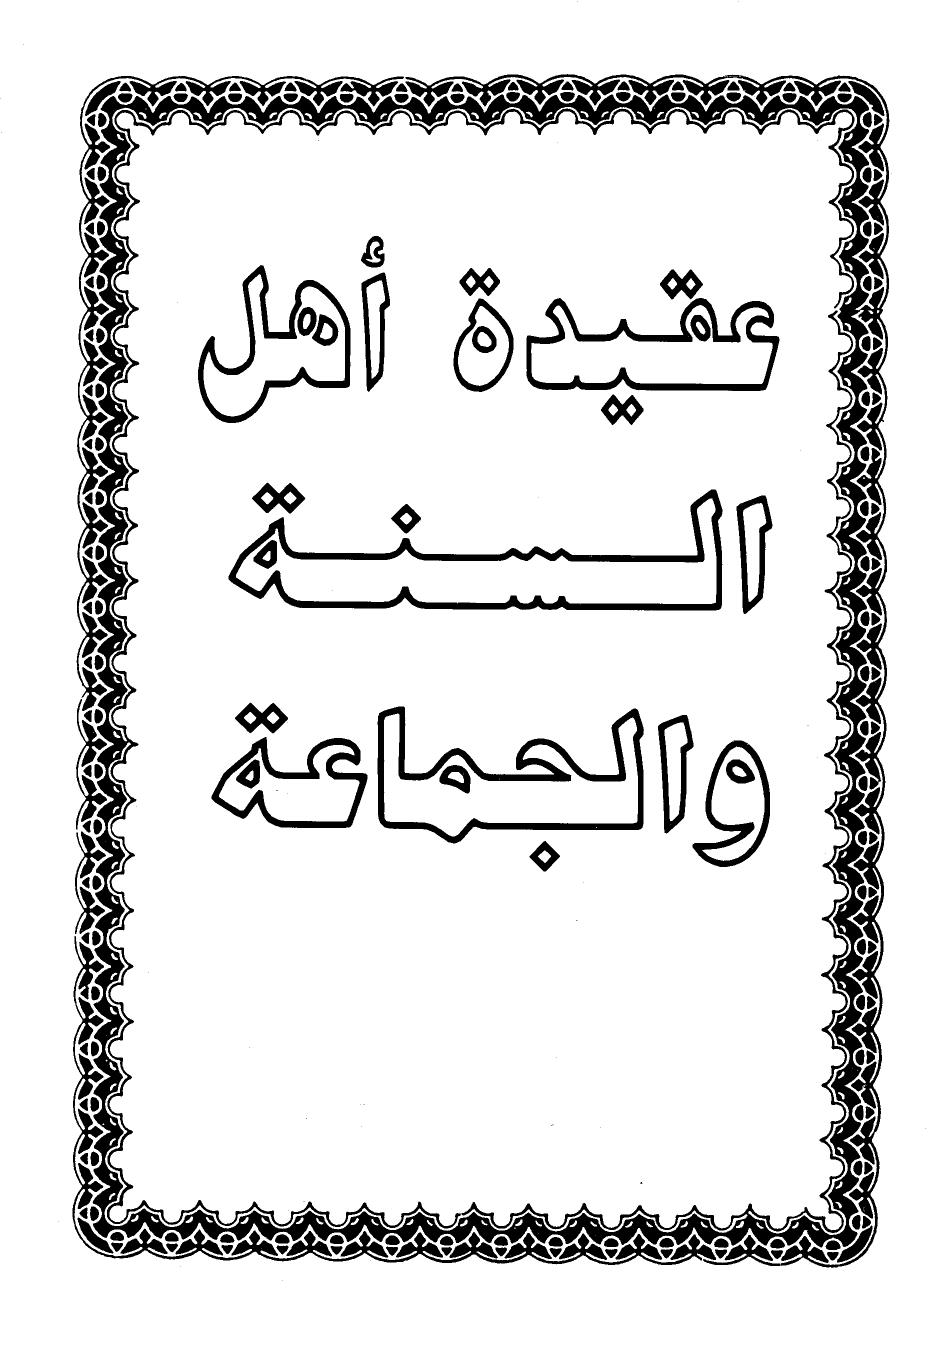 عقيدة أهل
السنة
والجماعة